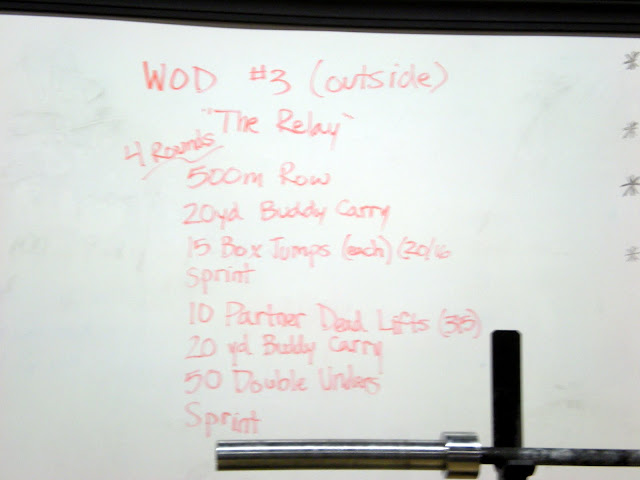 WOD #3 (outside)
"The Relay"
4 Rounds
500m Row
20yd Buddy Carry
15 Box Jumps (each) (20/16
Sprint
10 Partner Dead Lifts (315)
20 yd Buddy Carry
50 Double Unders
Sprint